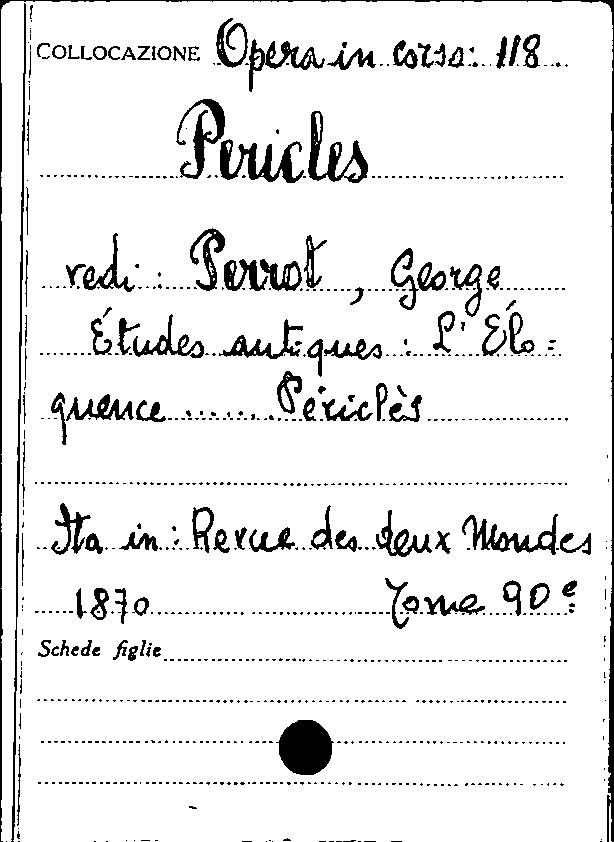 COLLOCAZIONE Opera in corso: 118
Pericles
vedi: Perrot, George
Études antiques: L'Élo=
quence ....... Périclès
Sta in: Revue des deux Mondes
1870 Tome 90e
Schede figlie